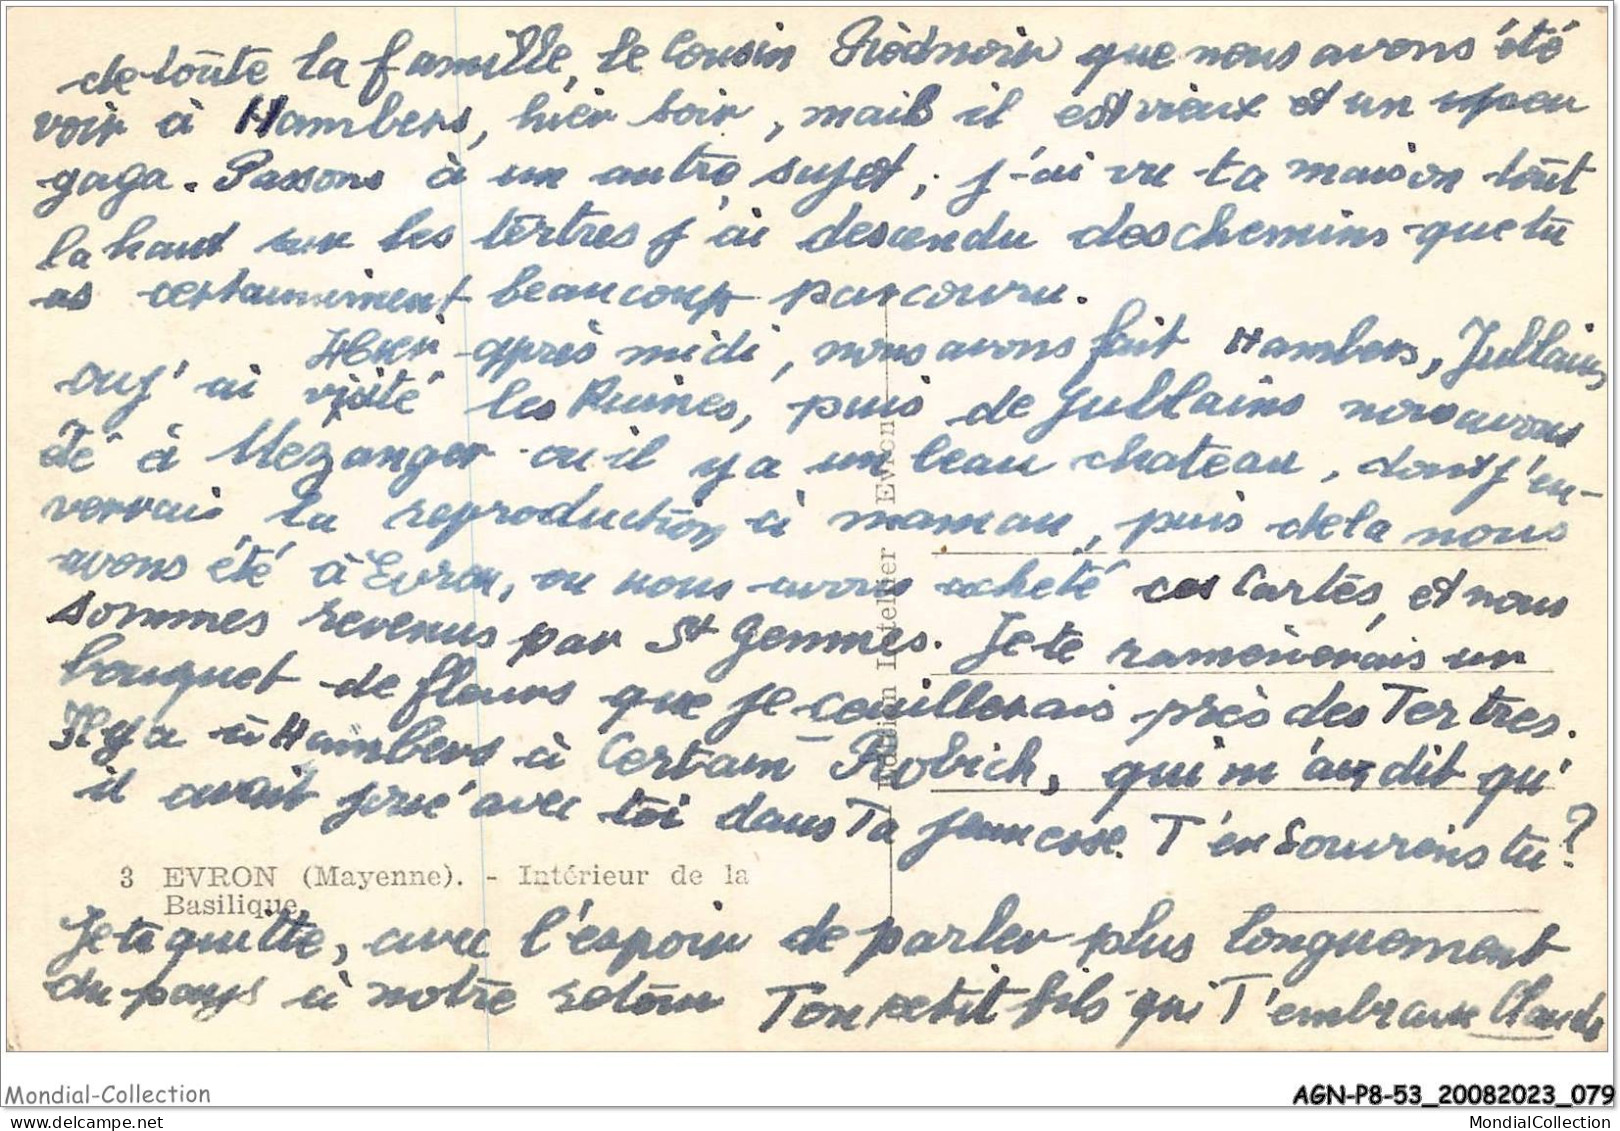 de toute la famille, le Cousin que nous avons été
voir à Hambers, hier soir, mais il est vieux et un peu
gaga. Passons à un autre sujet, j'ai vu ta maison tout
la haut sur les tertres j'ai descendu des chemins que tu
as certainement beaucoup parcouru.
Hier après midi, nous avons fait Hambers, Jublains,
ou j'ai visité les Ruines, puis de Jublains nous avons
été à Mezanger ou il y a un beau chateau, dont j'en-
verrais la reproduction à maman, puis de la nous
avons été à Evron, ou nous avons acheté ces Cartes, et nous
sommes revenus par St Gemmes. Je te ramènerais un
bouquet de fleurs que je ceuillerais près des Tertres.
Il y a à Hambers à Certain Robich, qui m'a dit qu'
il avait joué avec toi dans Ta jeunesse. T'en Souviens tu?
3 EVRON (Mayenne). - Intérieur de la
Basilique
Je te quitte, avec l'espoir de parler plus longuement
du pays à notre retour Ton petit fils qui T'embrasse Claude
Edition Letellier Evron
Mondial-Collection
AGN-P8-53_20082023_079
MondialCollection